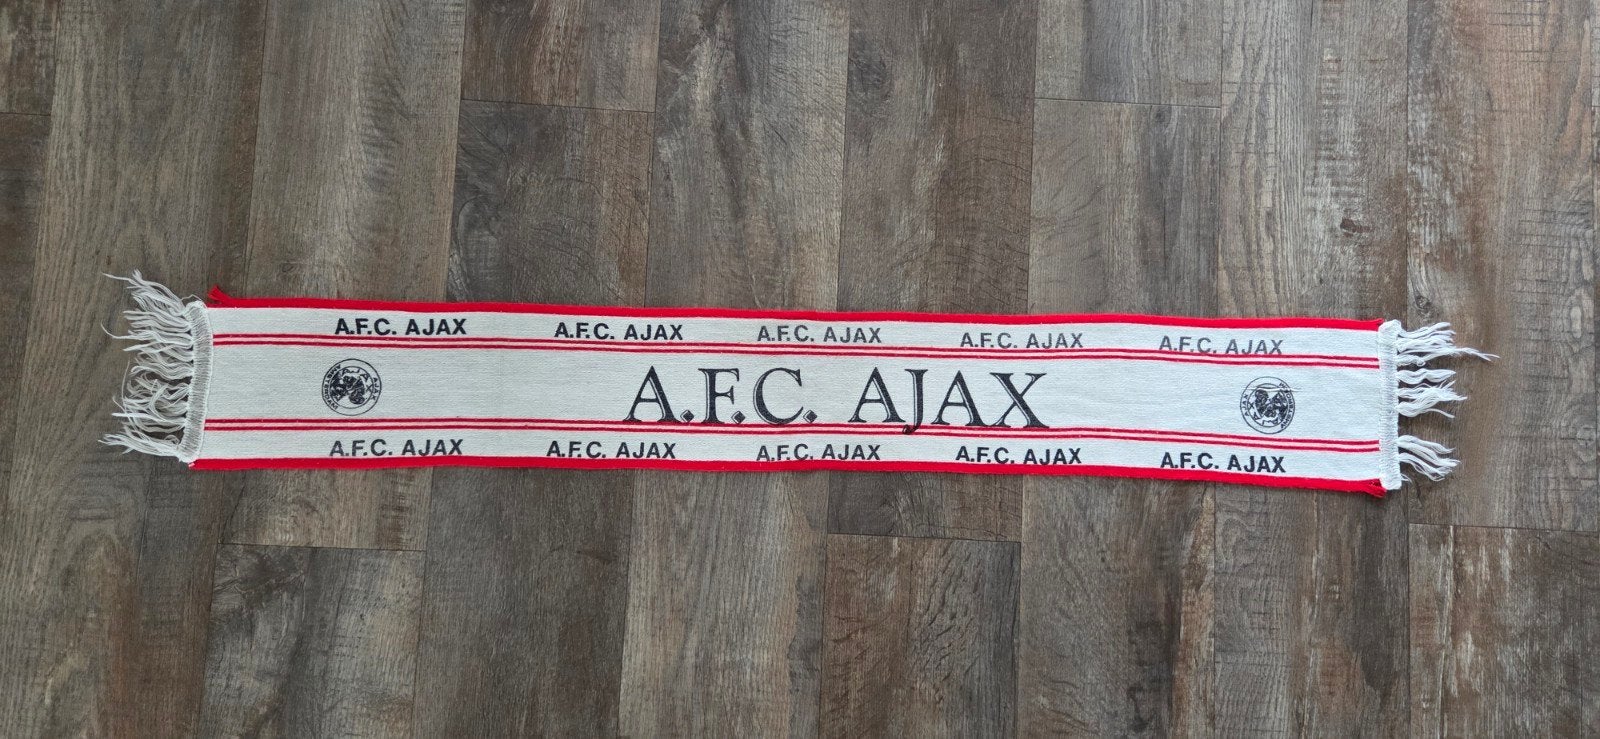 A.F.C. AJAX A.F.C. AJAX A.F.C. AJAX A.F.C. AJAX A.F.C. AJAX
AJAX
A.F.C. AJAX
AJAX
A.F.C. AJAX A.F.C. AJAX A.F.C. AJAX A.F.C. AJAX A.F.C. AJAX